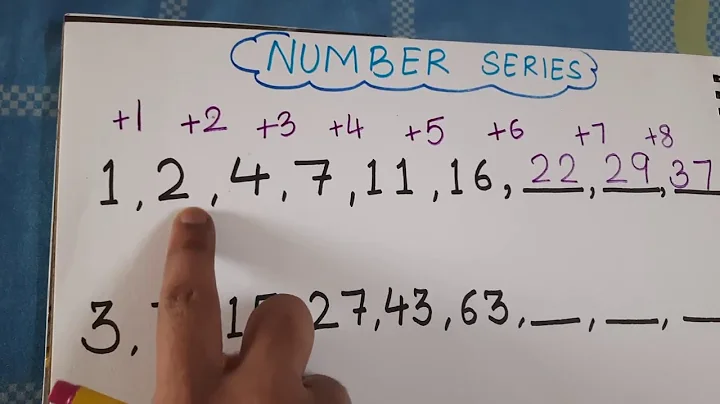 NUMBER SERIES
+1 +2 +3 +4 +5 +6 +7 +8
1, 2, 4, 7, 11, 16, 22, 29, 37
3, 27, 43, 63, __, __, __